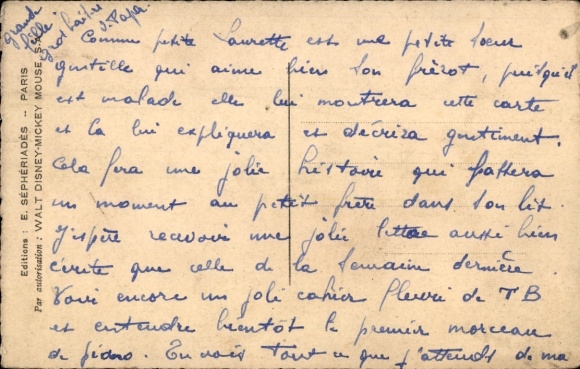 Comme petite Laurette est une petite soeur
gentille qui aime bien son frérot, puisqu'il
est malade elle lui montrera cette carte
et la lui expliquera et décrira gentiment.
Cela fera une jolie histoire qui passera
un moment au petit frère dans son lit.
J'espère recevoir une jolie lettre aussi bien
écrite que celle de la semaine dernière.
Voir encore un joli cahier fleuri de TB
et entendre bientôt le premier morceau
de piano. Tu vois tout ce que j'attends de ma
grande
fille
Gros baisers
Papa
Editions : E. SÉPHÉRIADÈS -- PARIS
Par autorisation : WALT DISNEY-MICKEY MOUSE S.A.